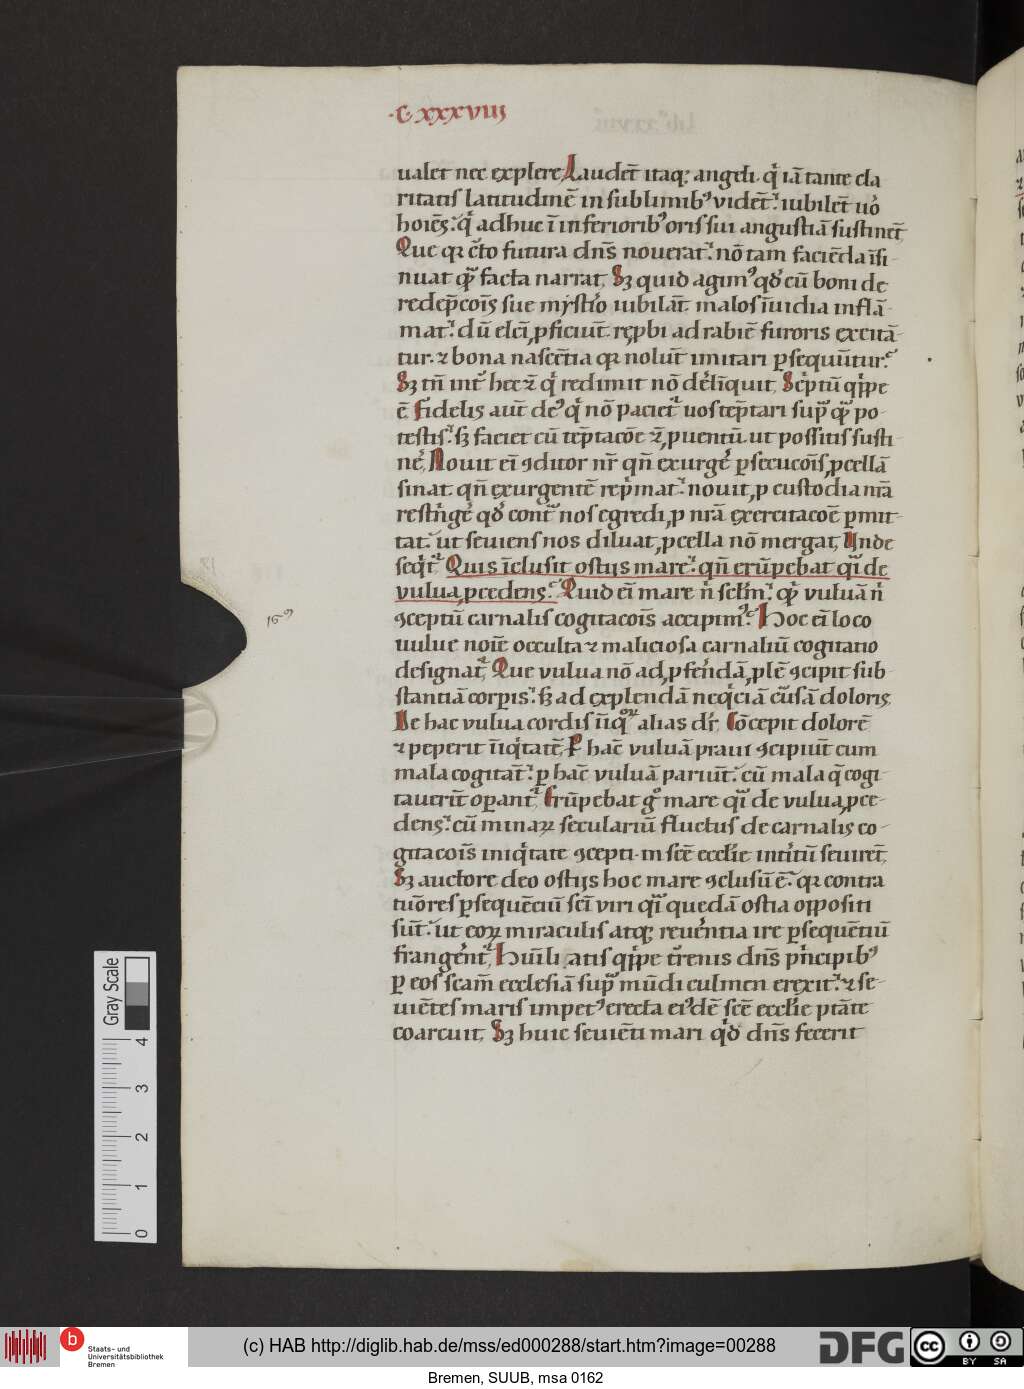 ·C·xxxviii
ualet nec explere Laudet̄ itaq; angeli. qͥ iā tante cla
ritatis latitudinē in sublimibꝰ videt̄. iubilet̄ uo̓
hoīes. qͥ adhuc ī inferioribꝰ oris sui angustiā sustinet̄
Que qꝛ c̄to futura dn̄s nouerat. nō tam faciēda īsi-
nuat qͣꝫ facta narrat. Sꝫ quid agimꝰ qd̓ cū boni de
redēpcoīs sue mystio iubilāt. malos īuidia inflā-
mat. dū elc̄i ꝓficiūt. rep̱bi ad rabiē furoris excitā-
tur. ⁊ bona nascētia qꝛ nolūt imitari ꝑsequūtur.
Sꝫ tn̄ int̓ hec ē qͥ redimit nō de͛līquit. Sc͛ptū qͥppe
ē Fidelis aūt deꝰ qͥ nō paciet᷑ uos tēptari supͣ qͣꝫ po-
testis. sꝫ faciet cū tēptacōe ē ꝓuentū. ut possitis susti-
ne͛ Nouit ei̅ ꝯditor nr̄ qn̄ exurge͛ ꝑsecucoīs ꝓcellā
sinat. qn̄ exurgentē rep͛mat. nouit ꝓ custodia nr̄a
rest͛nge͛ qd̓ contͣ nos egredi ꝓ nr̄a exercitacoē ꝑmit-
tat. ut seuiens nos diluat ꝓcella nō mergat. Unde
seqͥt᷑ Quis īclusit ostijs mare. qn̄ erūpebat qͣi de
vulua ꝓcedens. Quid ei̅ mare n̄ sclm̄. qͥd vuluā n̄
169
ꝯceptū carnalis cogitacoīs accipimꝰ. Hoc ei̅ loco
uulue noīe occulta ⁊ maliciosa carnaliū cogitatio
designat᷑ Que vulua nō ad ꝓferēdā ꝓlē ꝯcipit sub-
stantiā corꝑis. sꝫ ad explendā neqͥciā cūsā doloris
De hac vulua cordis īiqͦꝝ alias dr̄. Cōcepit dolorē
⁊ peperit īiqͥtatē. P hāc vuluā praui ꝯcipiūt cum
mala cogitāt. ꝑ hāc vuluā pariūt. cū mala q̄ cogi-
tauerūt oꝑant᷑ Erūpebat gͦ mare qͣi de vulua ꝓce-
dens. cū minaꝝ seculariū fluctus de carnalis co-
gitacoīs iniqͥtate ꝯcepti. in scē ecclīe int͛itū seuiret̄
Sꝫ auctore deo ostijs hoc mare ꝯclusū ē. qꝛ contra
tuōres ꝑsequēciū sc̄i viri qͣi quedā ostia oppositi
sūt. ut eoꝝ miraculis atq; reue͛ntia ire ꝑsequētiū
frange͛nt᷑ Hūīli atis qͥppe tr̄enis dn̄s pͥncipibꝰ
ꝑ eos scam̄ ecclesiā supͣ mūdi culmen erexit. ⁊ se-
uiētes maris impetꝰ erecta eiꝰdē scē ecclīe ptāte
coarcuit. Sꝫ huic seuiēti mari qͥd dn̄s fecerit
Gray Scale
0 1 2 3 4
b
Staats- und
Universitätsbibliothek
Bremen
(c) HAB http://diglib.hab.de/mss/ed000288/start.htm?image=00288
DFG
cc
BY SA
Bremen, SUUB, msa 0162